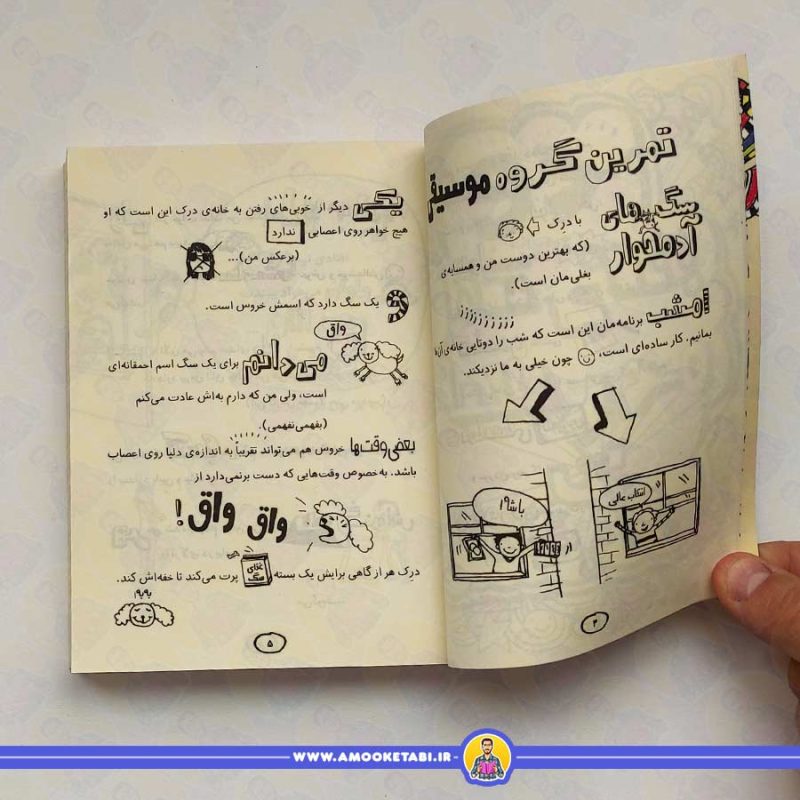 تمرین گروه موسیقی
سگ‌های
آدمخوار
با درک
(که بهترین دوست من و همسایه‌ی
بغلی‌مان است).
امشب برنامه‌مان این است که شب را دوتایی خانه‌ی آن‌ها
بمانیم. کار ساده‌ای است، چون خیلی به ما نزدیکند.
اسکاپ عالی
باشه!
۴
یکی دیگر از خوبی‌های رفتن به خانه‌ی درک این است که او
هیچ خواهر روی اعصابی ندارد
(برعکس من)...
یک سگ دارد که اسمش خروس است.
واق
می‌دانم برای یک سگ اسم احمقانه‌ای
است، ولی من که دارم به‌اش عادت می‌کنم
(بفهمی‌نفهمی).
بعضی وقت‌ها خروس هم می‌تواند تقریباً به اندازه‌ی دلیا روی اعصاب
باشد. به‌خصوص وقت‌هایی که دست برنمی‌دارد از
واق واق!
درک هر از گاهی برایش یک بسته غذای سگ پرت می‌کند تا خفه‌اش کند.
به‌به
۵
WWW.AMOOKETABI.IR